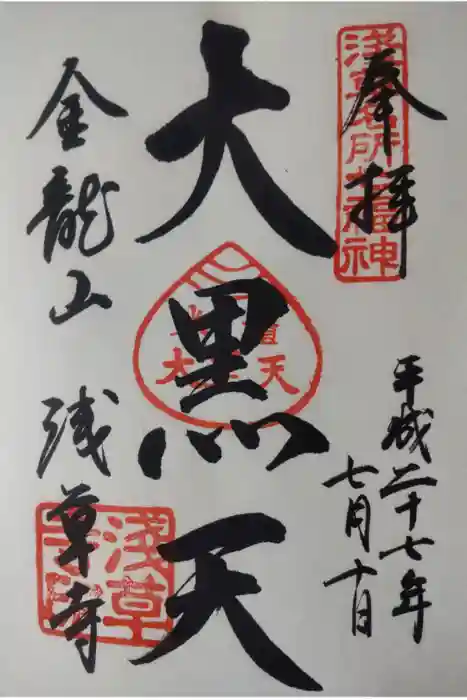 奉拝
淺草名所七福神
平成二十七年
七月十日
大黒天
金龍山 浅草寺
淺草寺印